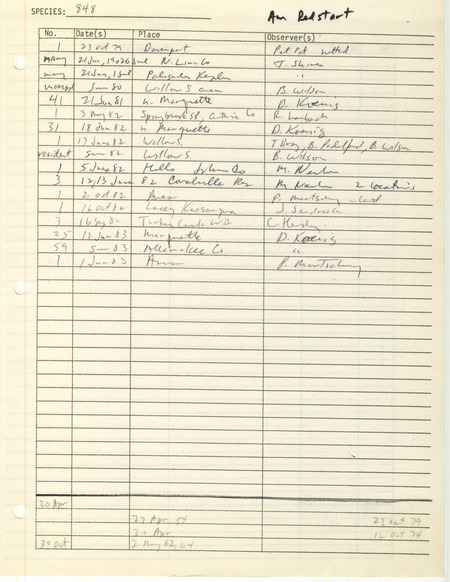 SPECIES: 848 Am Redstart
No. Date(s) Place Observer(s)
1 23 Oct 79 Davenport Pet Pet netted
many 21 Jun, 19 & 26 Jul N. Linn Co T. Shires
many 21 Jun, 1 Jul Palisades Kepler "
Jun 80 Willow S area B. Wilson
41 21 Jun 81 n. Marquette D. Koenig
1 3 May 82 Springbrook SP, Guthrie Co R.
31 18 Jun 82 n. Marquette D. Koenig
1 17 June 82 Willow S. T Bray, B. Padelford, B. Wilson
resident Sum 82 Willow S. B. Wilson
1 5 June 82 Hills Johnson Co M. Newlon
3 12, 13 June 82 Coralville Res M Newlon 2 locations
1 2 Oct 82 Ames P. Martsching
1 16 Oct 82 Lacey Keosauqua J. Sandrock
3 16 Sep 82 Turkey Creek
25 12 Jun 83 Marquette D. Koenig
59 Sum 83 Allamakee Co "
1 1 Jun 83 Ames P. Martsching
30 Apr
27 Apr 54 23 Oct 79
30 Apr 12 Oct 74
30 Oct 2 May 62, 64